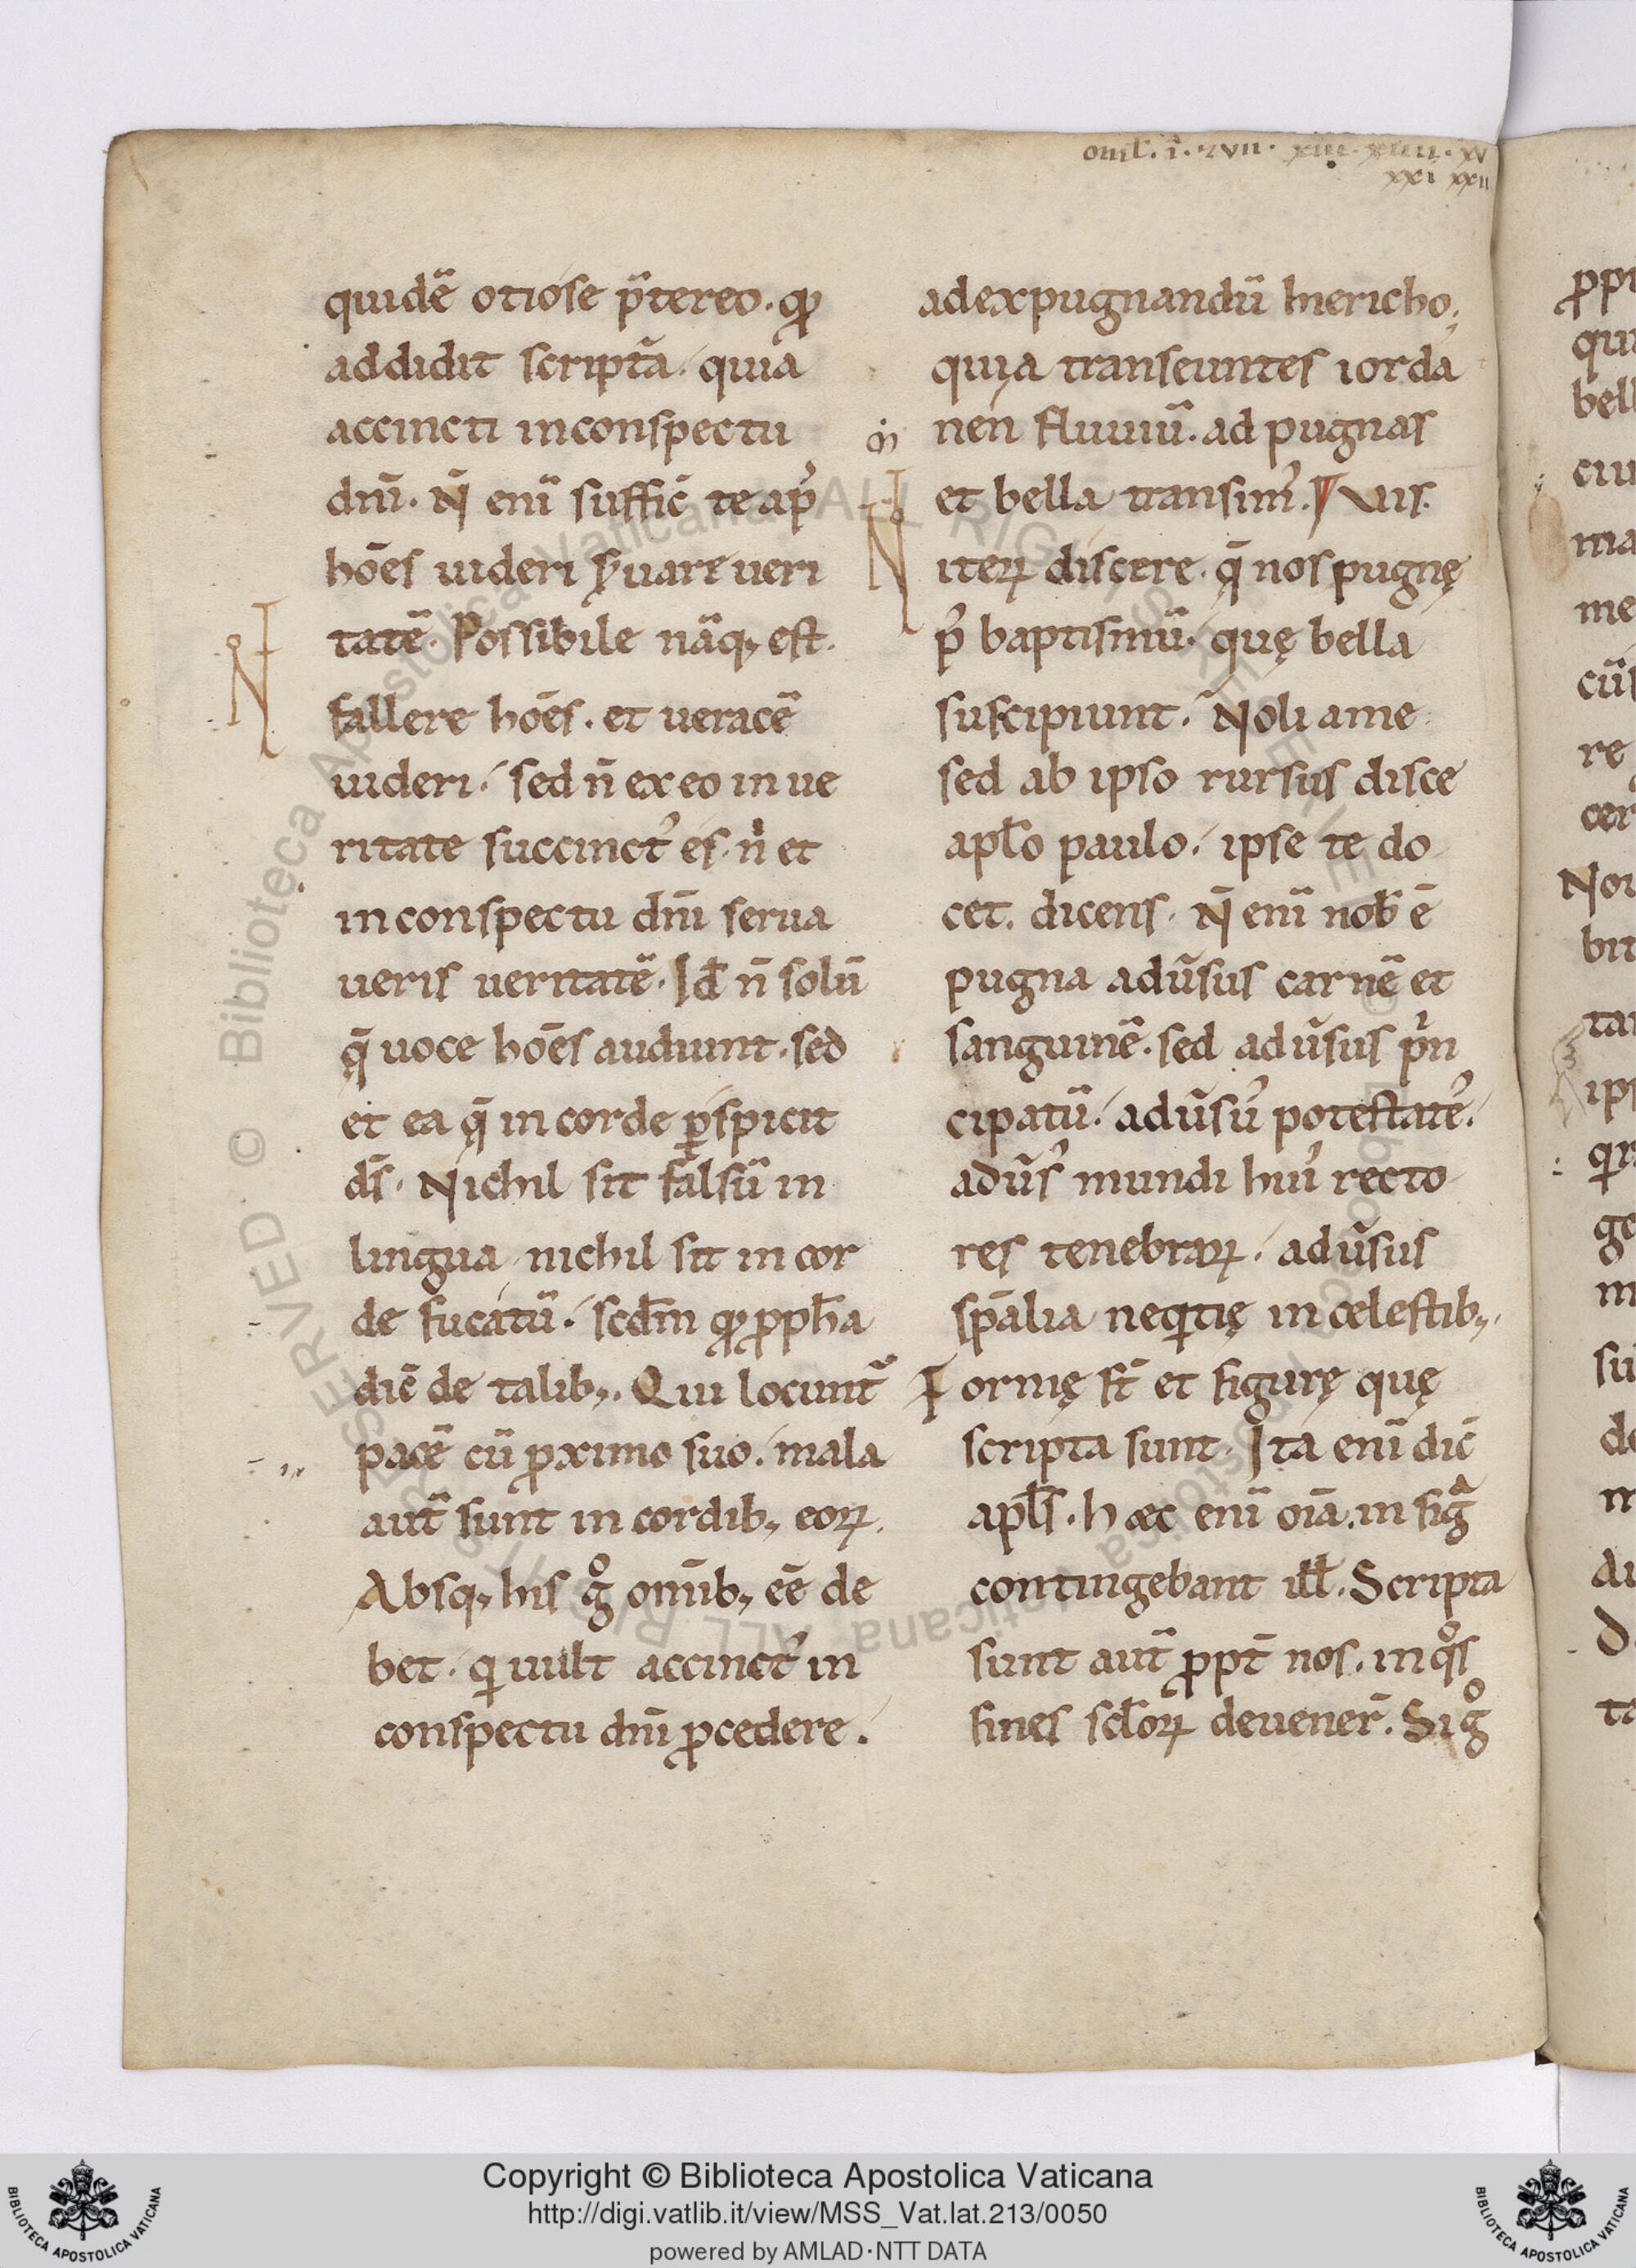 omł. i. xvii. xiii. xiiii. xv
xxi xxii
quidē otiose p̄tereo. qđ
addidit scriptͣa. quia
accincti inconspectu
dn̄i. N̄ eni̅ suffic̄ te ap̾
ho̅es uideri s̾uare ueri
tatē. Possibile na̅q; est.
fallere ho̅es. et ueracē
uideri. sed n̄ ex eo in ue
ritate succinctꝰ es. n̍ et
in conspectu dn̄i serua
ueris ueritatē. Id̄ n̄ solū
q̄ uoce ho̅es audiunt. sed
et ea q̄ in corde ꝑspicit
ds̄. Nichil sit falsū in
lingua. nichil sit in cor
de fucatū. scd̄m qđ ꝓph̄a
dic̄ de talib;. Qui locunt᷑
pacē cū ꝓximo suo. mala
aut̅ sunt in cordib; eoꝝ.
Absq; his gͦ om̄ib; e̅e de
bet. q̍ uult accinctꝰ in
conspectu dn̄i ꝓcedere.
adexpugnandū hiericho.
quia transeuntes iorda
nen fluuiū. ad pugnas
et bella transimꝰ. Vis.
iteꝝ discere. q̄ nos pugnę
pꝰ baptismū. quę bella
suscipiunt. Noli a me
sed ab ipso rursus disce
apl̄o paulo. ipse te do
cet. dicens. N̄ eni̅ nob̄ ē
pugna adu̅sus carnē et
sanguinē. sed adu̅sus p̍n
cipatū. adu̅suꝰ potestatēꝰ.
adu̅sꝰ mundi huiꝰ recto
res tenebraꝝ. adu̅sus
sp̄alia neq̍tię in celestib;.
Formę st̄ et figurę quę
scripta sunt. Ita eni̅ dic̄
apl̄s. hæc eni̅ oi̅a. in figͣ
contingebant ill̄. Scripta
sunt aut̅ ꝓpt̄ nos. in qͦs
fines scl̄oꝝ deuener̄. Si gͦ
Copyright © Biblioteca Apostolica Vaticana
http://digi.vatlib.it/view/MSS_Vat.lat.213/0050
powered by AMLAD·NTT DATA
BIBLIOTECA APOSTOLICA VATICANA
BIBLIOTECA APOSTOLICA VATICANA